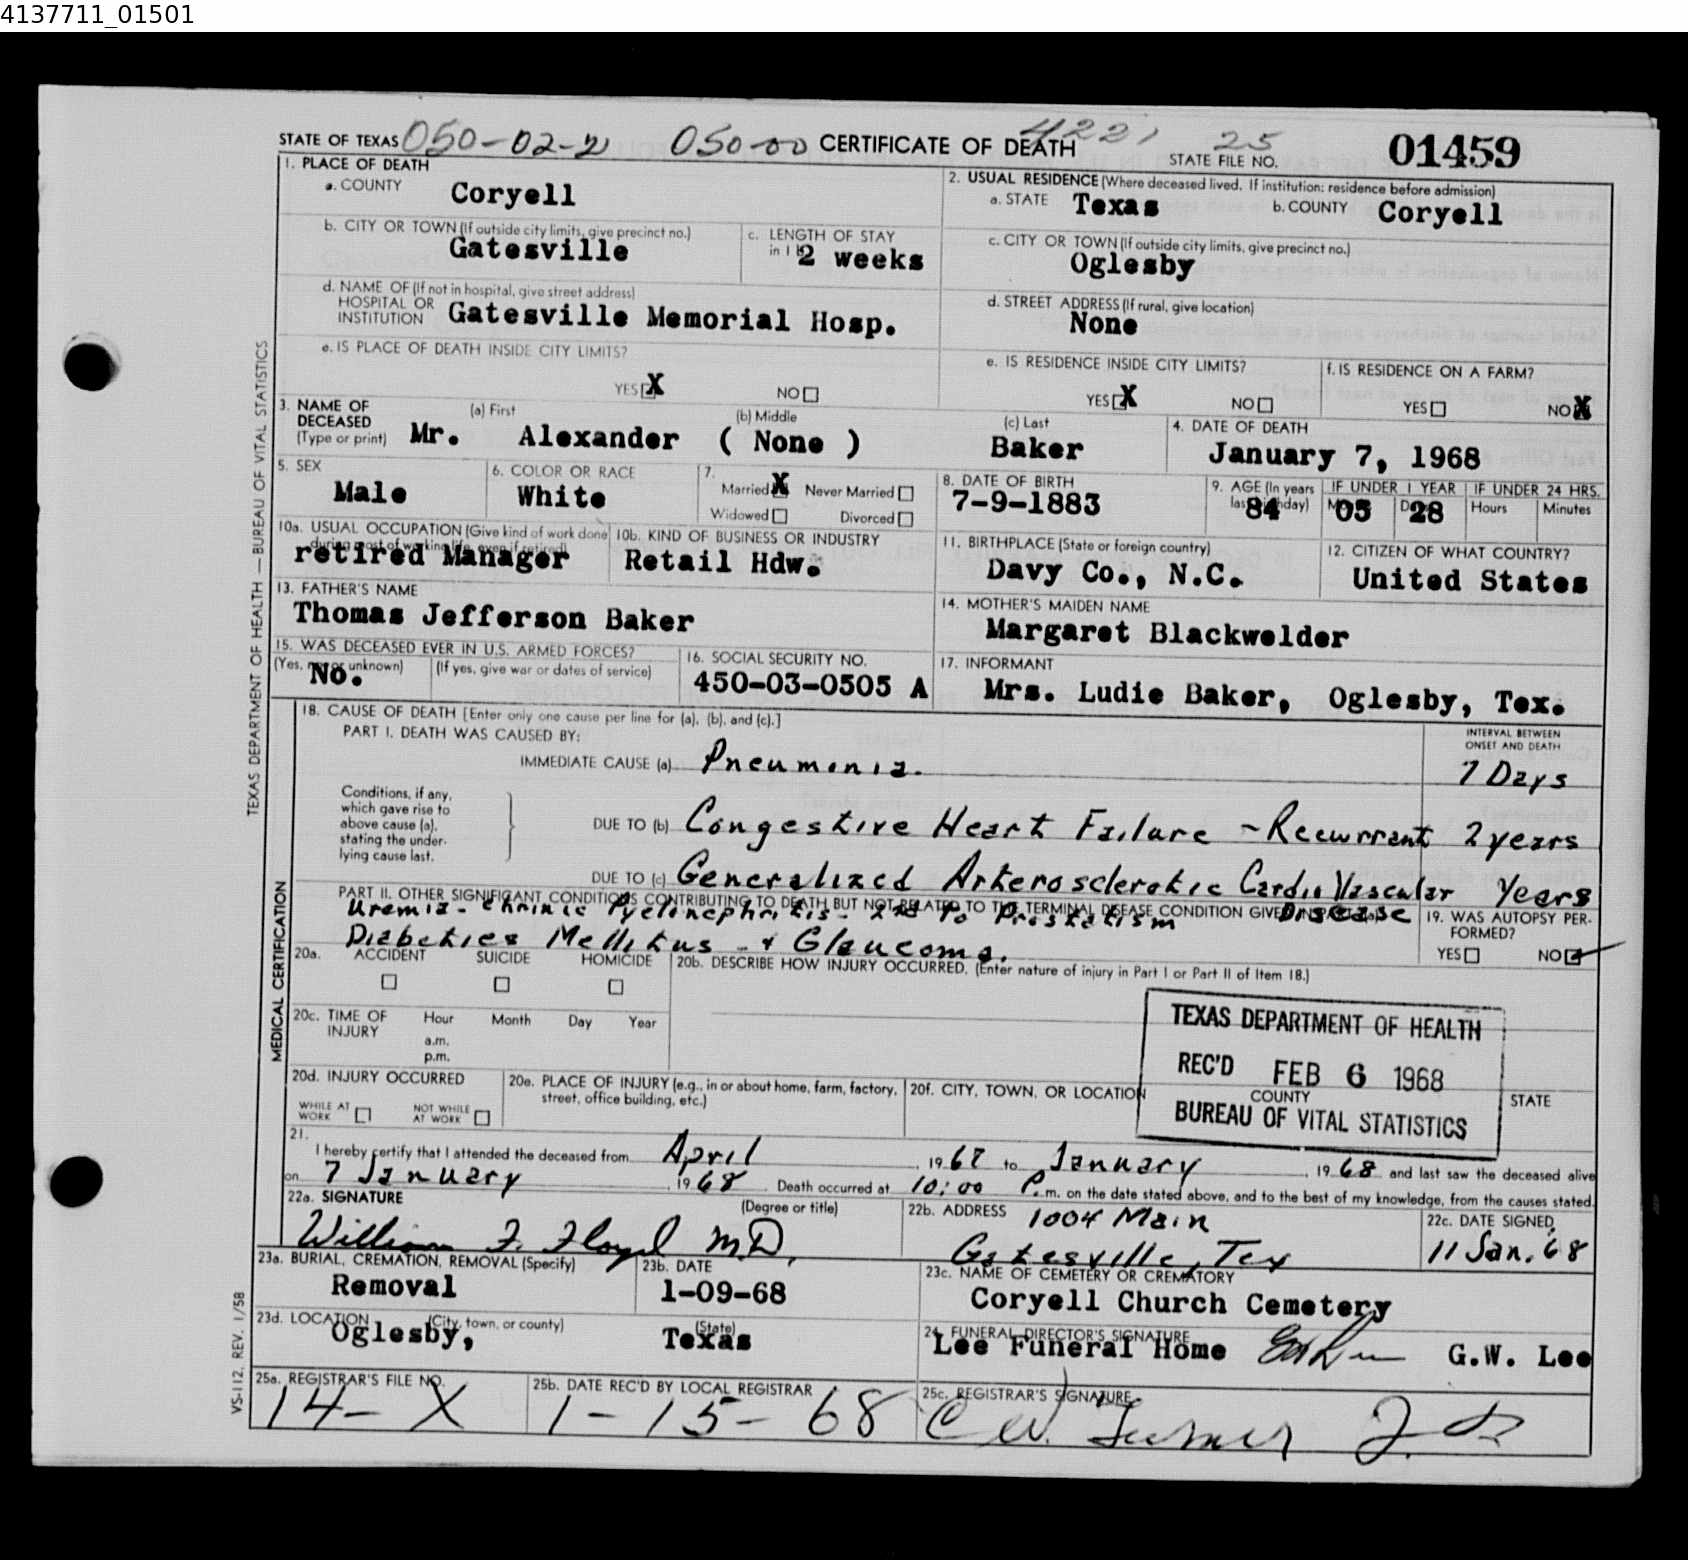 4137711_01501
STATE OF TEXAS 050-02-21 050-00 CERTIFICATE OF DEATH 4221 25 STATE FILE NO. 01459
1. PLACE OF DEATH
a. COUNTY Coryell
2. USUAL RESIDENCE (Where deceased lived. If institution: residence before admission)
a. STATE Texas b. COUNTY Coryell
b. CITY OR TOWN (If outside city limits, give precinct no.) Gatesville
c. LENGTH OF STAY in 1 b 2 weeks
c. CITY OR TOWN (If outside city limits, give precinct no.) Oglesby
d. NAME OF (If not in hospital, give street address) HOSPITAL OR INSTITUTION Gatesville Memorial Hosp.
d. STREET ADDRESS (If rural, give location) None
e. IS PLACE OF DEATH INSIDE CITY LIMITS? YES X NO
e. IS RESIDENCE INSIDE CITY LIMITS? YES X NO
f. IS RESIDENCE ON A FARM? YES NO X
3. NAME OF DECEASED (Type or print) Mr. (a) First Alexander (b) Middle ( None ) (c) Last Baker
4. DATE OF DEATH January 7, 1968
5. SEX Male
6. COLOR OR RACE White
7. Married X Never Married Widowed Divorced
8. DATE OF BIRTH 7-9-1883
9. AGE (In years last birthday) 84 IF UNDER 1 YEAR 05 28 IF UNDER 24 HRS. Hours Minutes
10a. USUAL OCCUPATION (Give kind of work done during most of working life, even if retired) retired Manager
10b. KIND OF BUSINESS OR INDUSTRY Retail Hdw.
11. BIRTHPLACE (State or foreign country) Davy Co., N.C.
12. CITIZEN OF WHAT COUNTRY? United States
13. FATHER'S NAME Thomas Jefferson Baker
14. MOTHER'S MAIDEN NAME Margaret Blackwelder
15. WAS DECEASED EVER IN U.S. ARMED FORCES? (Yes, no, or unknown) No. (If yes, give war or dates of service)
16. SOCIAL SECURITY NO. 450-03-0505 A
17. INFORMANT Mrs. Ludie Baker, Oglesby, Tex.
18. CAUSE OF DEATH [Enter only one cause per line for (a), (b), and (c).]
PART I. DEATH WAS CAUSED BY:
INTERVAL BETWEEN ONSET AND DEATH
IMMEDIATE CAUSE (a) Pneumonia. 7 Days
Conditions, if any, which gave rise to above cause (a), stating the underlying cause last.
DUE TO (b) Congestive Heart Failure - Recurrant 2 years
DUE TO (c) Generalized Arterosclerotic Cardio Vascular Disease Years
PART II. OTHER SIGNIFICANT CONDITIONS CONTRIBUTING TO DEATH BUT NOT RELATED TO THE TERMINAL DISEASE CONDITION GIVEN IN PART I(a)
Uremia - Chronic Pyelonephritis - 2nd to Prostatism
Diabeties Mellitus - & Glaucoma.
19. WAS AUTOPSY PERFORMED? YES NO
20a. ACCIDENT SUICIDE HOMICIDE
20b. DESCRIBE HOW INJURY OCCURRED. (Enter nature of injury in Part I or Part II of Item 18.)
20c. TIME OF INJURY Hour Month Day Year
a.m.
p.m.
TEXAS DEPARTMENT OF HEALTH
REC'D FEB 6 1968
BUREAU OF VITAL STATISTICS
20d. INJURY OCCURRED WHILE AT WORK NOT WHILE AT WORK
20e. PLACE OF INJURY (e.g., in or about home, farm, factory, street, office building, etc.)
20f. CITY, TOWN, OR LOCATION COUNTY STATE
21. I hereby certify that I attended the deceased from April, 1967 to January, 1968 and last saw the deceased alive
on 7 January, 1968. Death occurred at 10:00 P.m. on the date stated above, and to the best of my knowledge, from the causes stated.
22a. SIGNATURE (Degree or title) William F. Floyd M.D.
22b. ADDRESS 1004 Main Gatesville, Tex
22c. DATE SIGNED 11 Jan. 68
23a. BURIAL, CREMATION, REMOVAL (Specify) Removal
23b. DATE 1-09-68
23c. NAME OF CEMETERY OR CREMATORY Coryell Church Cemetery
23d. LOCATION (City, town, or county) Oglesby, (State) Texas
24. FUNERAL DIRECTOR'S SIGNATURE Lee Funeral Home G.W. Lee
25a. REGISTRAR'S FILE NO. 14-X
25b. DATE REC'D BY LOCAL REGISTRAR 1-15-68
25c. REGISTRAR'S SIGNATURE C W. Turner
TEXAS DEPARTMENT OF HEALTH — BUREAU OF VITAL STATISTICS
MEDICAL CERTIFICATION
VS-112, REV. 1/58